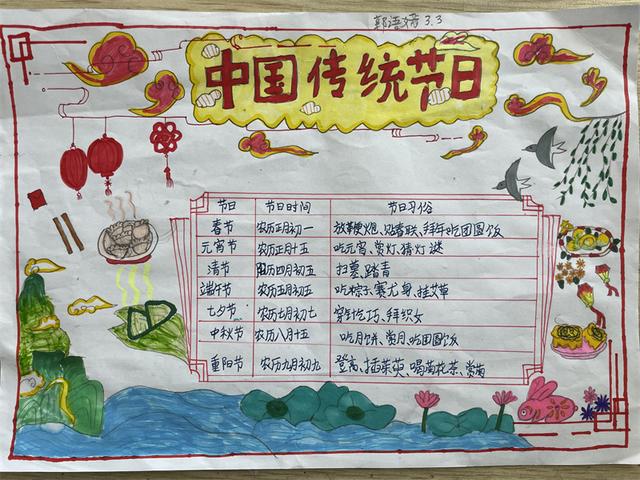 郭语婧 3.3
中国传统节日
节日 节日时间 节日习俗
春节 农历正月初一 放鞭炮、贴春联、拜年吃团圆饭
元宵节 农历正月十五 吃元宵、赏灯、猜灯谜
清节 阳历四月初五 扫墓、踏青
端午节 农历五月初五 吃粽子、赛龙舟、挂艾草
七夕节 农历七月初七 穿针乞巧、拜织女
中秋节 农历八月十五 吃月饼、赏月、吃团圆饭
重阳节 农历九月初九 登高、插茱萸、喝菊花茶、赏菊